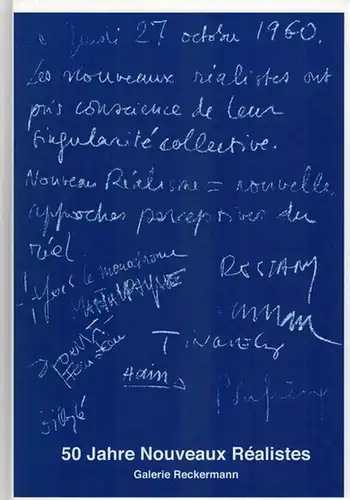 Jeudi 27 octobre 1960.
Les nouveaux réalistes ont
pris conscience de leur
singularité collective.
Nouveau Réalisme = nouvelles
approches perceptives du
réel
Yves le monochrome
RESTANY
Arman
TINGUELY
Hains
50 Jahre Nouveaux Réalistes
Galerie Reckermann